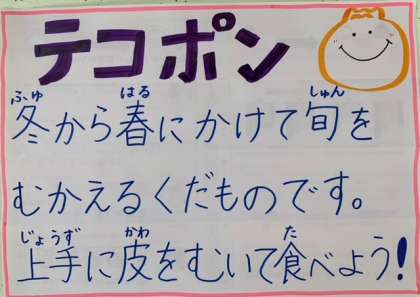 テコポン
冬から春にかけて旬を
ふゆ はる しゅん
むかえるくだものです。
上手に皮をむいて食べよう!
じょうず かわ た